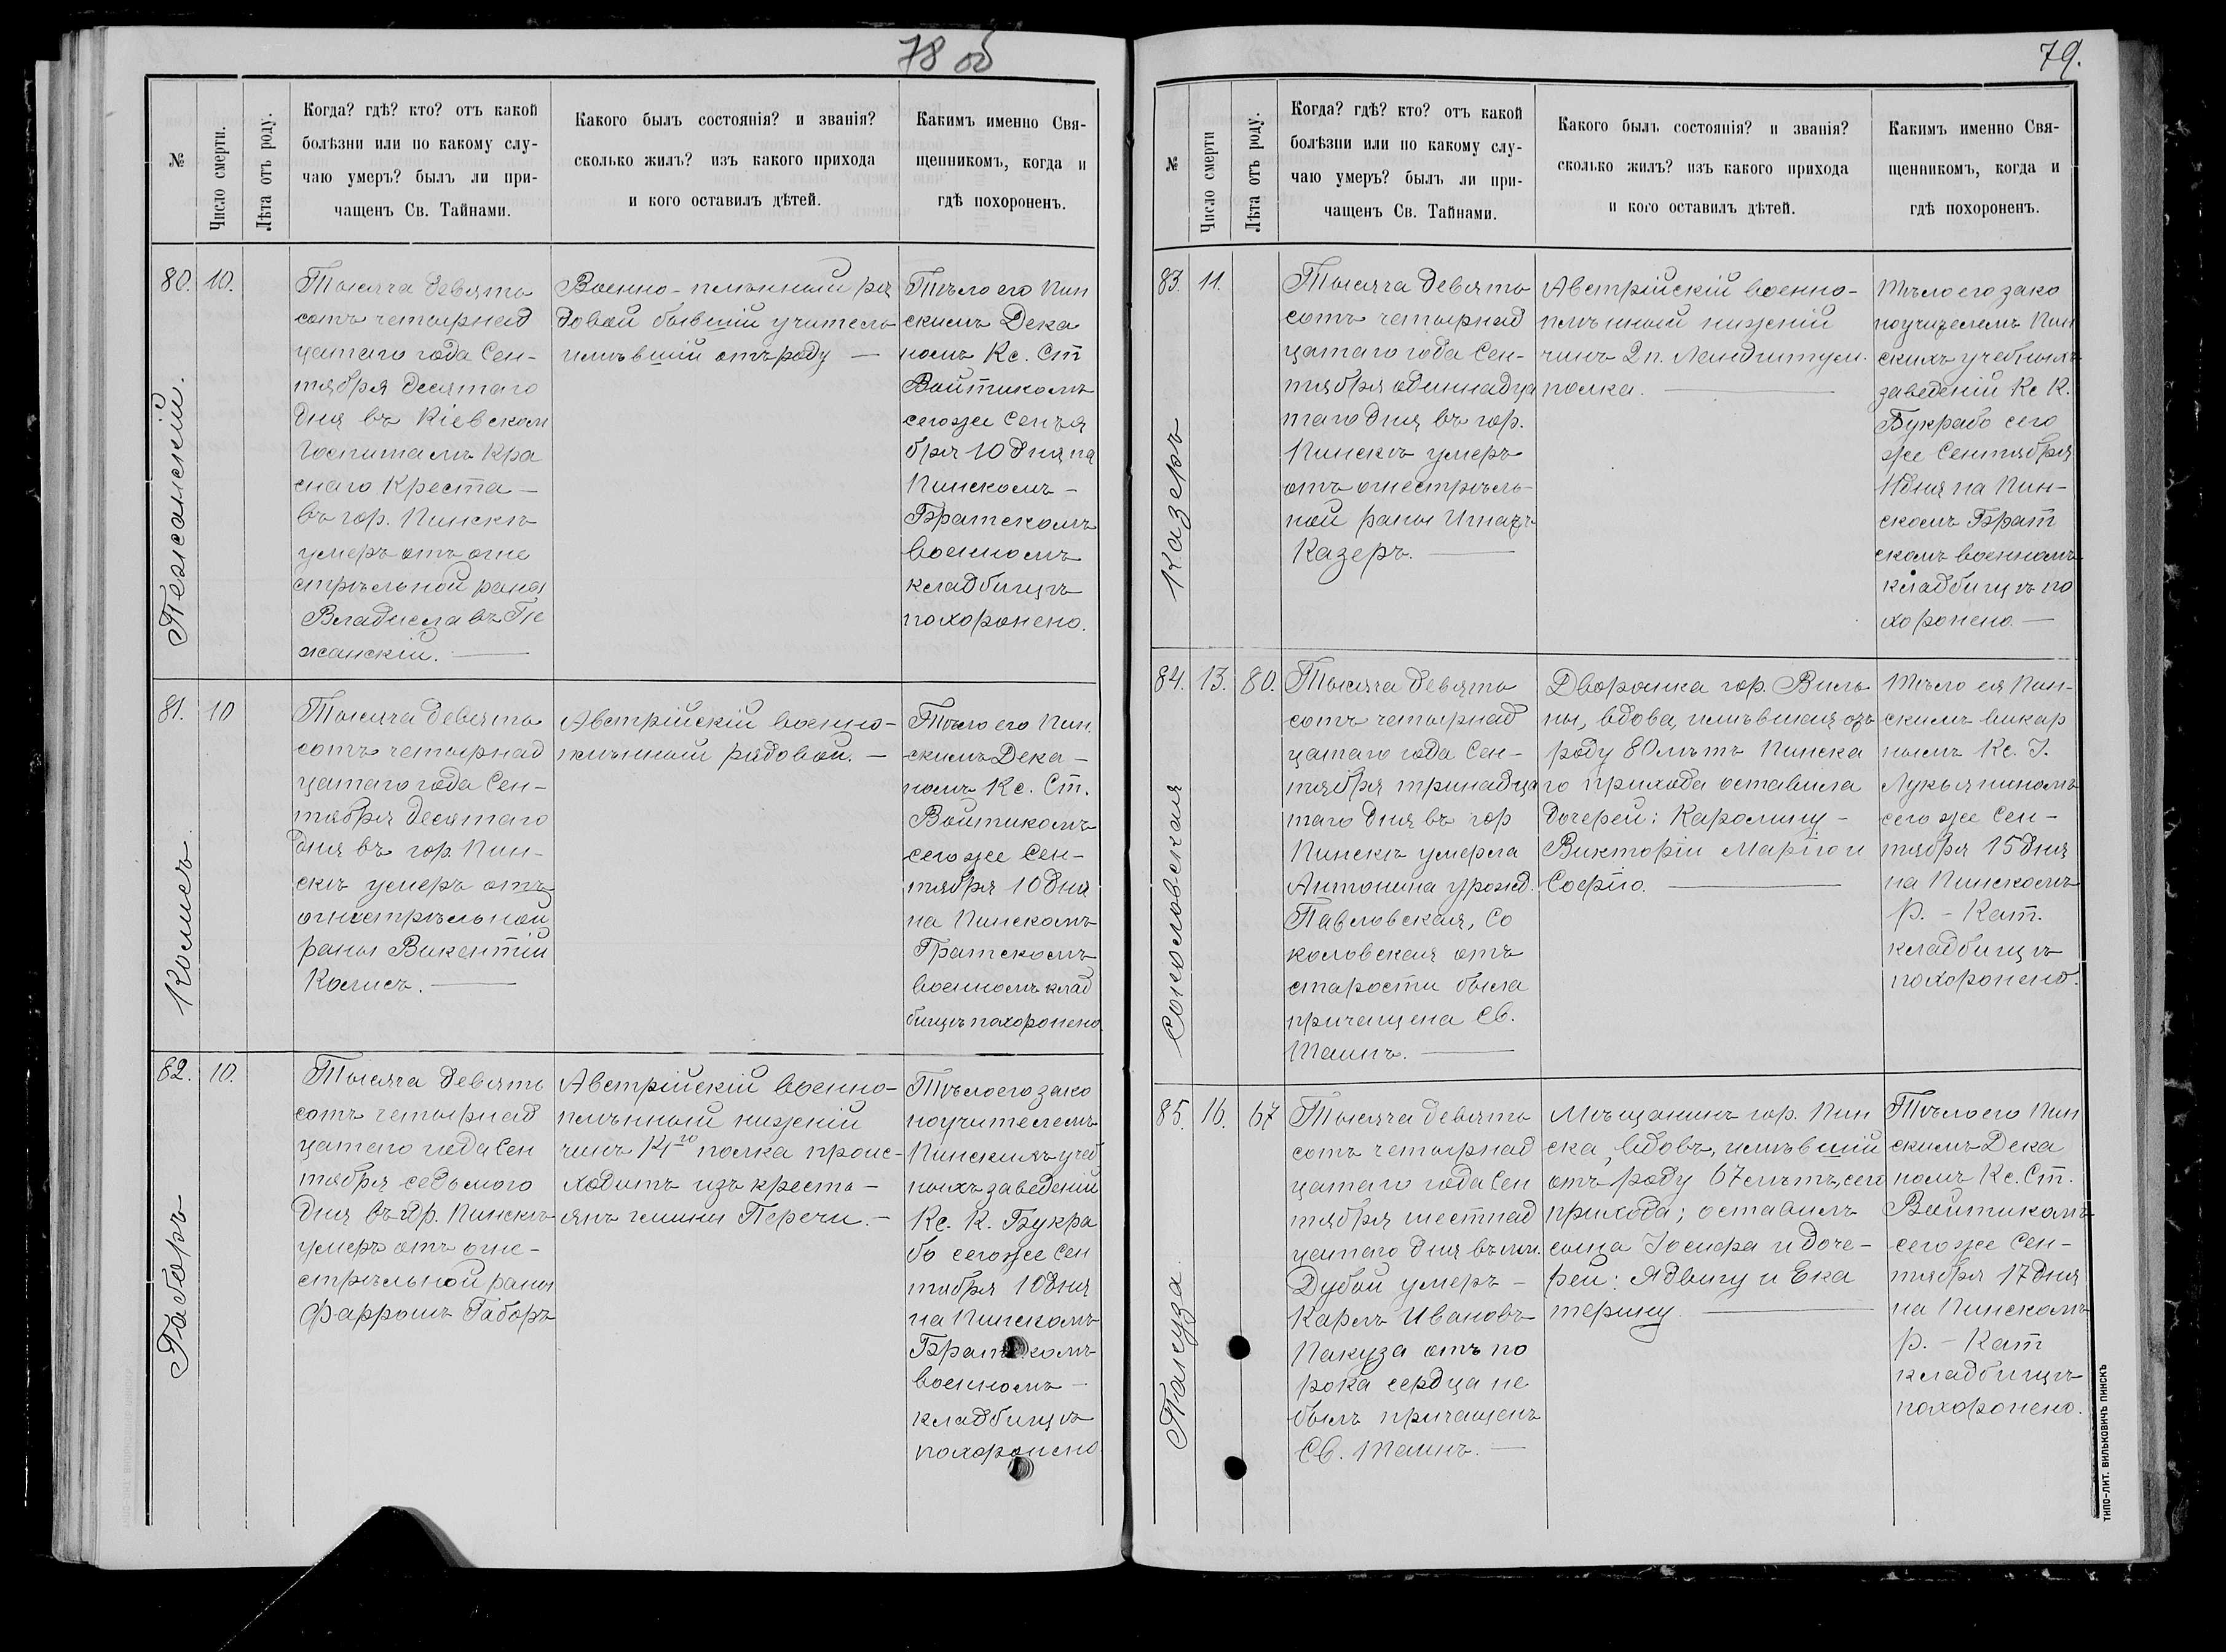 78 об
№
Число смерти.
Лѣта отъ роду.
Когда? гдѣ? кто? отъ какой
болѣзни или по какому слу-
чаю умеръ? былъ ли при-
чащенъ Св. Тайнами.
Какого былъ состоянія? и званія?
сколько жилъ? изъ какого прихода
и кого оставилъ дѣтей.
Какимъ именно Свя-
щенникомъ, когда и
гдѣ похороненъ.
80.
10.
Пежанскій.
Тысяча девять
сотъ четырнад
цатаго года Сен-
тября десятаго
дня въ Кіевском
Госпиталѣ Кра
снаго Креста -
въ гор. Пинскѣ
умеръ отъ огне
стрѣльной раны
Владиславъ Пе
жанскій. —
Военно-плѣнный ря
довой бывшій учитель
имѣвшій отъ роду —
Тѣло его Пин
скимъ Дека
номъ Кс. Ст
Войтикомъ
сего же Сентя
бря 10 дня на
Пинскомъ -
Братскомъ
военномъ
кладбищѣ
похоронено.
81.
10
Комисъ
Тысяча девять
сотъ четырнад
цатаго года Сен-
тября десятаго
дня въ гор. Пин-
скѣ умеръ отъ
огнестрѣльной
раны Викентій
Комисъ. —
Австрійскій военно-
плѣнный рядовой. —
Тѣло его Пин
скимъ Дека-
номъ Кс. Ст.
Войтикомъ
сего же Сен-
тября 10 дня
на Пинскомъ
Братскомъ
военномъ клад
бищѣ похоронено
82.
10.
Габоръ
Тысяча девять
сотъ четырнад
цатаго года Сен
тября седьмого
дня въ гор. Пинскѣ
умеръ отъ огне-
стрѣльной раны
Фаррошъ Габоръ
Австрійскій военно-
плѣнный нижній
чинъ 14го полка проис-
ходитъ изъ кресть-
янъ гмины Перечи. —
Тѣло его зако
ноучителемъ
Пинскихъ учеб
ныхъ заведеній
Кс. К. Букра
бо сего же Сен
тября 10 дня
на Пинскомъ
Братскомъ
военномъ -
кладбищѣ
похоронено
79.
№
Число смерти
Лѣта отъ роду.
Когда? гдѣ? кто? отъ какой
болѣзни или по какому слу-
чаю умеръ? былъ ли при-
чащенъ Св. Тайнами.
Какого былъ состоянія? и званія?
сколько жилъ? изъ какого прихода
и кого оставилъ дѣтей.
Какимъ именно Свя-
щенникомъ, когда и
гдѣ похороненъ.
83.
11.
Казеръ
Тысяча девять
сотъ четырнад
цатаго года Сен-
тября одиннадца
таго дня въ гор.
Пинскѣ умеръ
отъ огнестрѣль-
ной раны Игнатъ
Казеръ. —
Австрійскій военно-
плѣнный нижній
чинъ 2 п. Ландштурм.
полка. —
Тѣло его зако
ноучителемъ Пин
скихъ учебныхъ
заведеній Кс К.
Букрабо сего
же Сентября
11 дня на Пин-
скомъ Брат
скомъ военномъ
кладбищѣ по
хоронено. —
84.
13.
80.
Соколовская
Тысяча девять
сотъ четырнад
цатаго года Сен-
тября тринадца
таго дня въ гор
Пинскѣ умерла
Антонина урожд.
Павловская, Со
коловская отъ
старости была
причащена Св.
Таинъ. —
Дворянка гор. Виль
ны, вдова, имѣвшая отъ
роду 80 лѣтъ Пинска
го прихода оставила
дочерей: Каролину -
Викторію Марію и
Софію. —
Тѣло ея Пин-
скимъ викар
нымъ Кс. І.
Лукьяниномъ
сего же Сен-
тября 15 дня
на Пинскомъ
р. - Кат.
кладбищѣ
похоронено.
85.
16.
67
Пакуза
Тысяча девять
сотъ четырнад
цатаго года Сен
тября шестнад
цатаго дня въ им.
Дубой умеръ -
Карлъ Ивановъ
Пакуза отъ по
рока сердца не
былъ причащенъ
Св. Таинъ. —
Мѣщанинъ гор. Пин
ска, вдовъ, имѣвшій
отъ роду 67 лѣтъ, сего
прихода; оставилъ
сына Іосифа и доче-
рей: Ядвигу и Ека
терину. —
Тѣло его Пин
скимъ Дека
номъ Кс. Ст.
Войтикомъ
сего же Сен-
тября 17 дня
на Пинскомъ
р. - Кат
кладбищѣ
похоронено.
ТИПО-ЛИТ. ВИЛЬКОВИЧЪ ПИНСКЪ